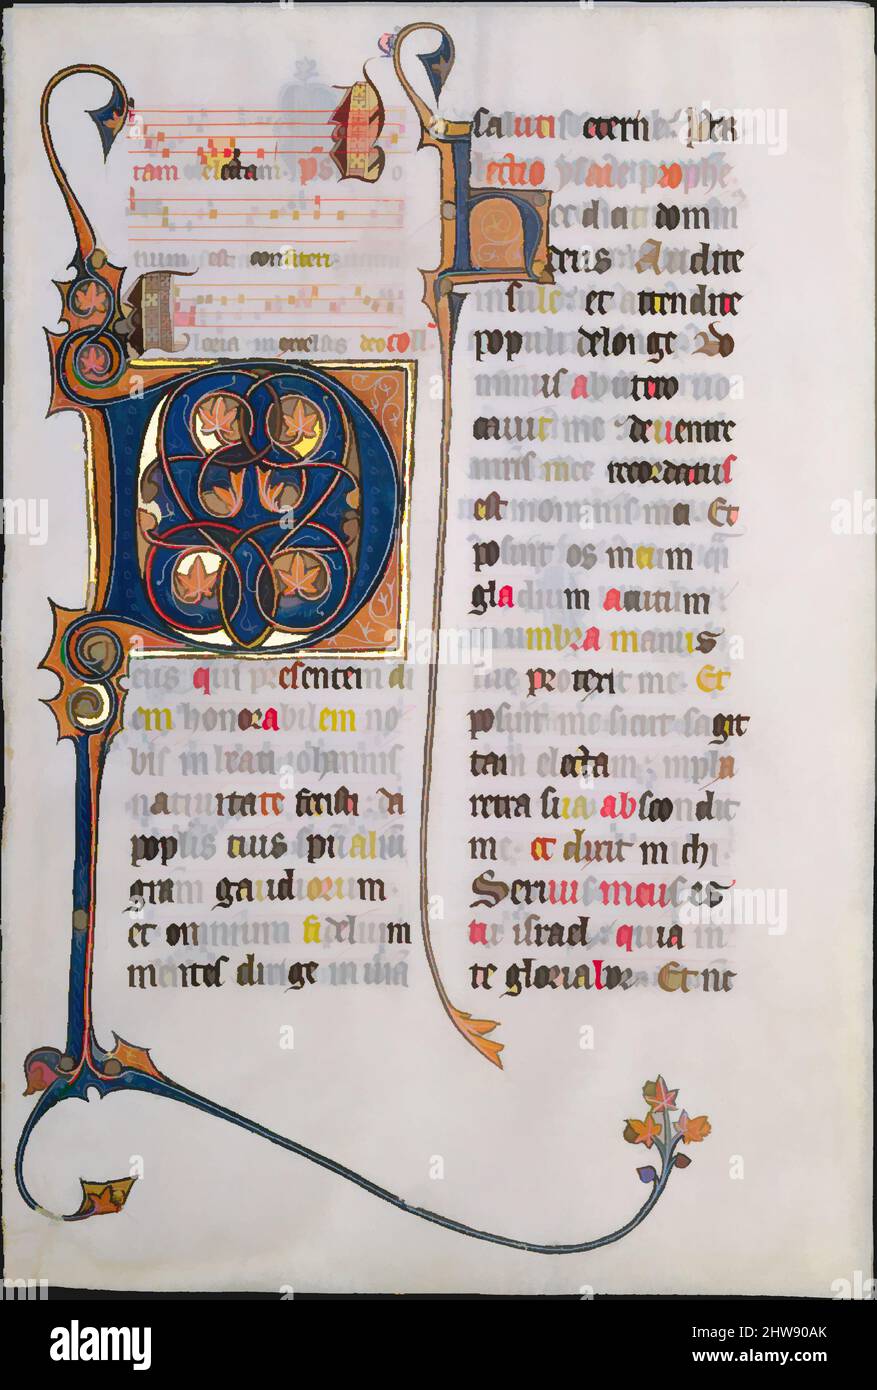 tam electam. ps
num est confiteri
loria in excelsis deo coll'
eus qui presentem di
em honorabilem no
bis in beati iohannis
natiuitate fecisti da
populis tuis spūaliū
grām gaudiorum
et omnium fidelium
mentes dirige in uiā
salutis eterne
lectio ysaie prophe
ec dicit domin
deus Audite
insule et attendite
populi de longe Do
minus ab utero uo
cauit me de uentre
matris mee recordatus
est nominis mei Et
posuit os meum qā
gladium acutum
in umbra manus
sue protexit me Et
posuit me sicut sagit
tam electam in pha
retra sua abscondit
me et dixit michi
Seruus meus es
tu israel quia in
te gloriabor Et nc
alamy
Image ID: 2HW90AK
www.alamy.com